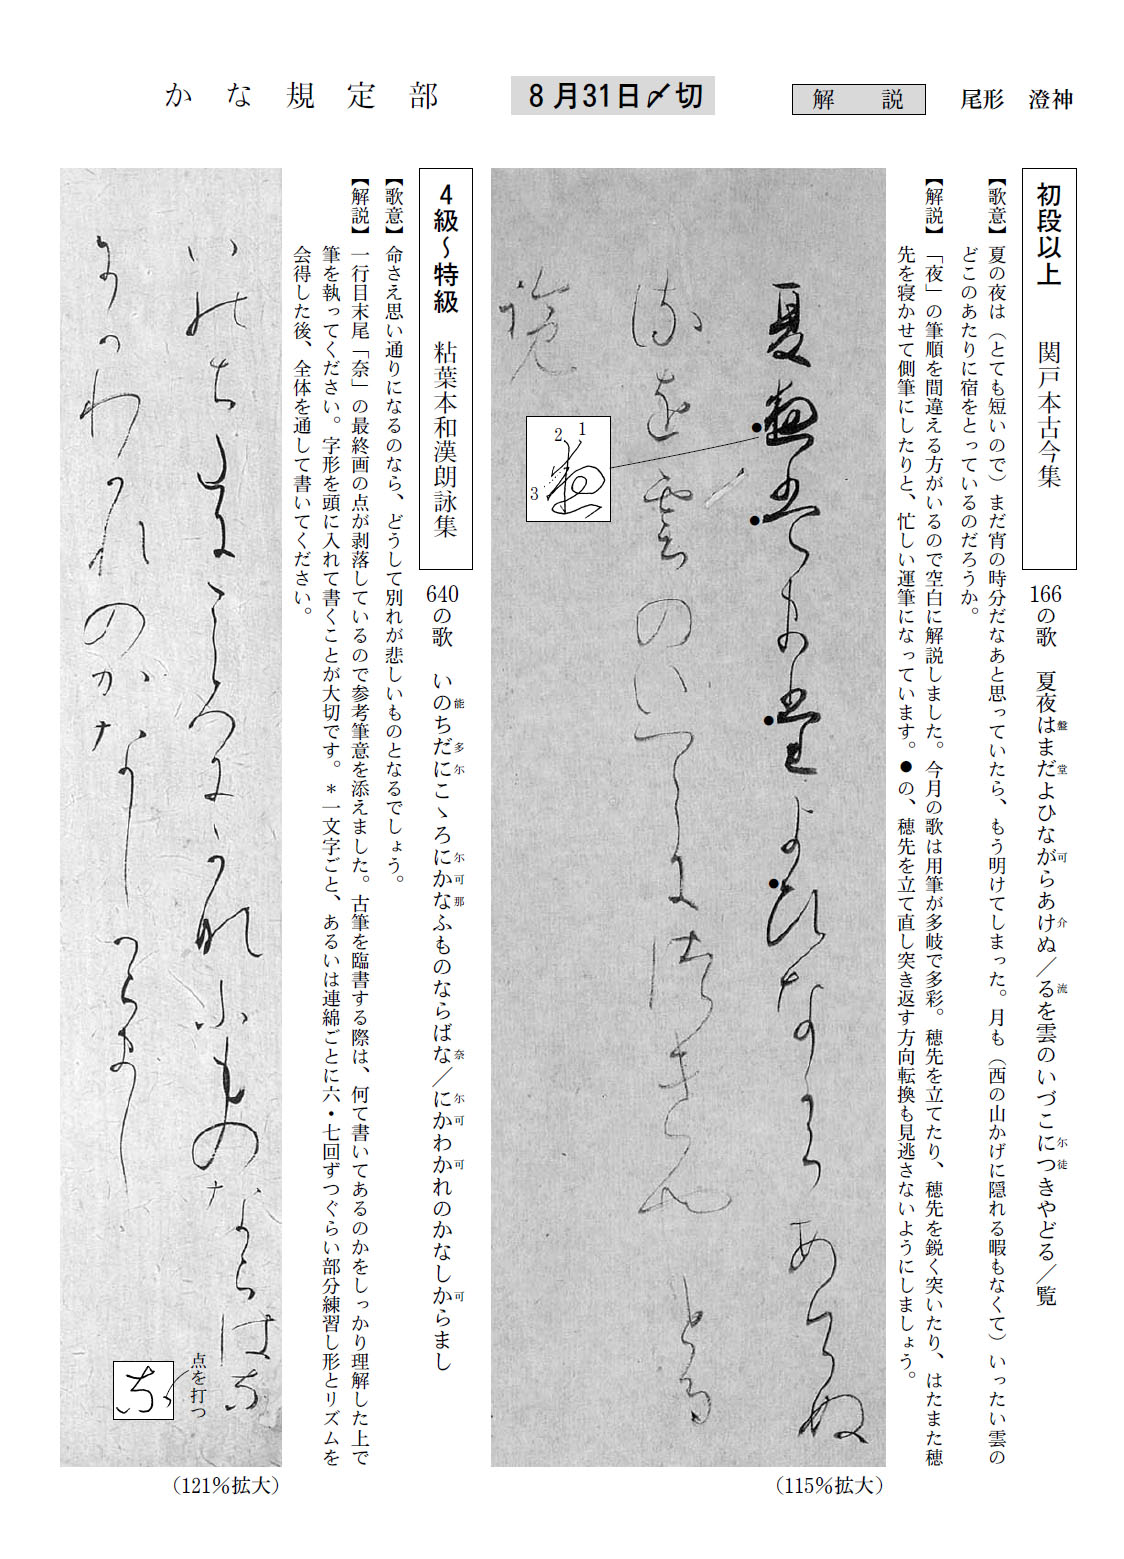 かな規定部
8月31日〆切
解説
尾形 澄神
初段以上 関戸本古今集
166の歌 夏夜は盤まだ堂よひなが可らあけ介ぬ／る流を雲のいづこに尓つ徒きやどる／覧
【歌意】夏の夜は（とても短いので）まだ宵の時分だなあと思っていたら、もう明けてしまった。月も（西の山かげに隠れる暇もなくて）いったい雲の
どこのあたりに宿をとっているのだろうか。
【解説】「夜」の筆順を間違える方がいるので空白に解説しました。今月の歌は用筆が多岐で多彩。穂先を立てたり、穂先を鋭く突いたり、はたまた穂
先を寝かせて側筆にしたりと、忙しい運筆になっています。●の、穂先を立て直し突き返す方向転換も見逃さないようにしましょう。
夏夜盤まま堂よひなからあけぬ
流を雲のいつこ尓徒きやとる
覧
1
2
3
（115％拡大）
4級～特級 粘葉本和漢朗詠集
640の歌 いの能ちだ多に尓こゝろに尓か可な那ふものならばな奈／に尓か可わか可れのかなしか可らまし
【歌意】命さえ思い通りになるのなら、どうして別れが悲しいものとなるでしょう。
【解説】一行目末尾「奈」の最終画の点が剥落しているので参考筆意を添えました。古筆を臨書する際は、何て書いてあるのかをしっかり理解した上で
筆を執ってください。字形を頭に入れて書くことが大切です。＊一文字ごと、あるいは連綿ごとに六・七回ずつぐらい部分練習し形とリズムを
会得した後、全体を通して書いてください。
い能ち多尓こゝろ尓可那ふものならは奈
尓可わ可れのかなし可らまし
点を打つ
奈
（121％拡大）